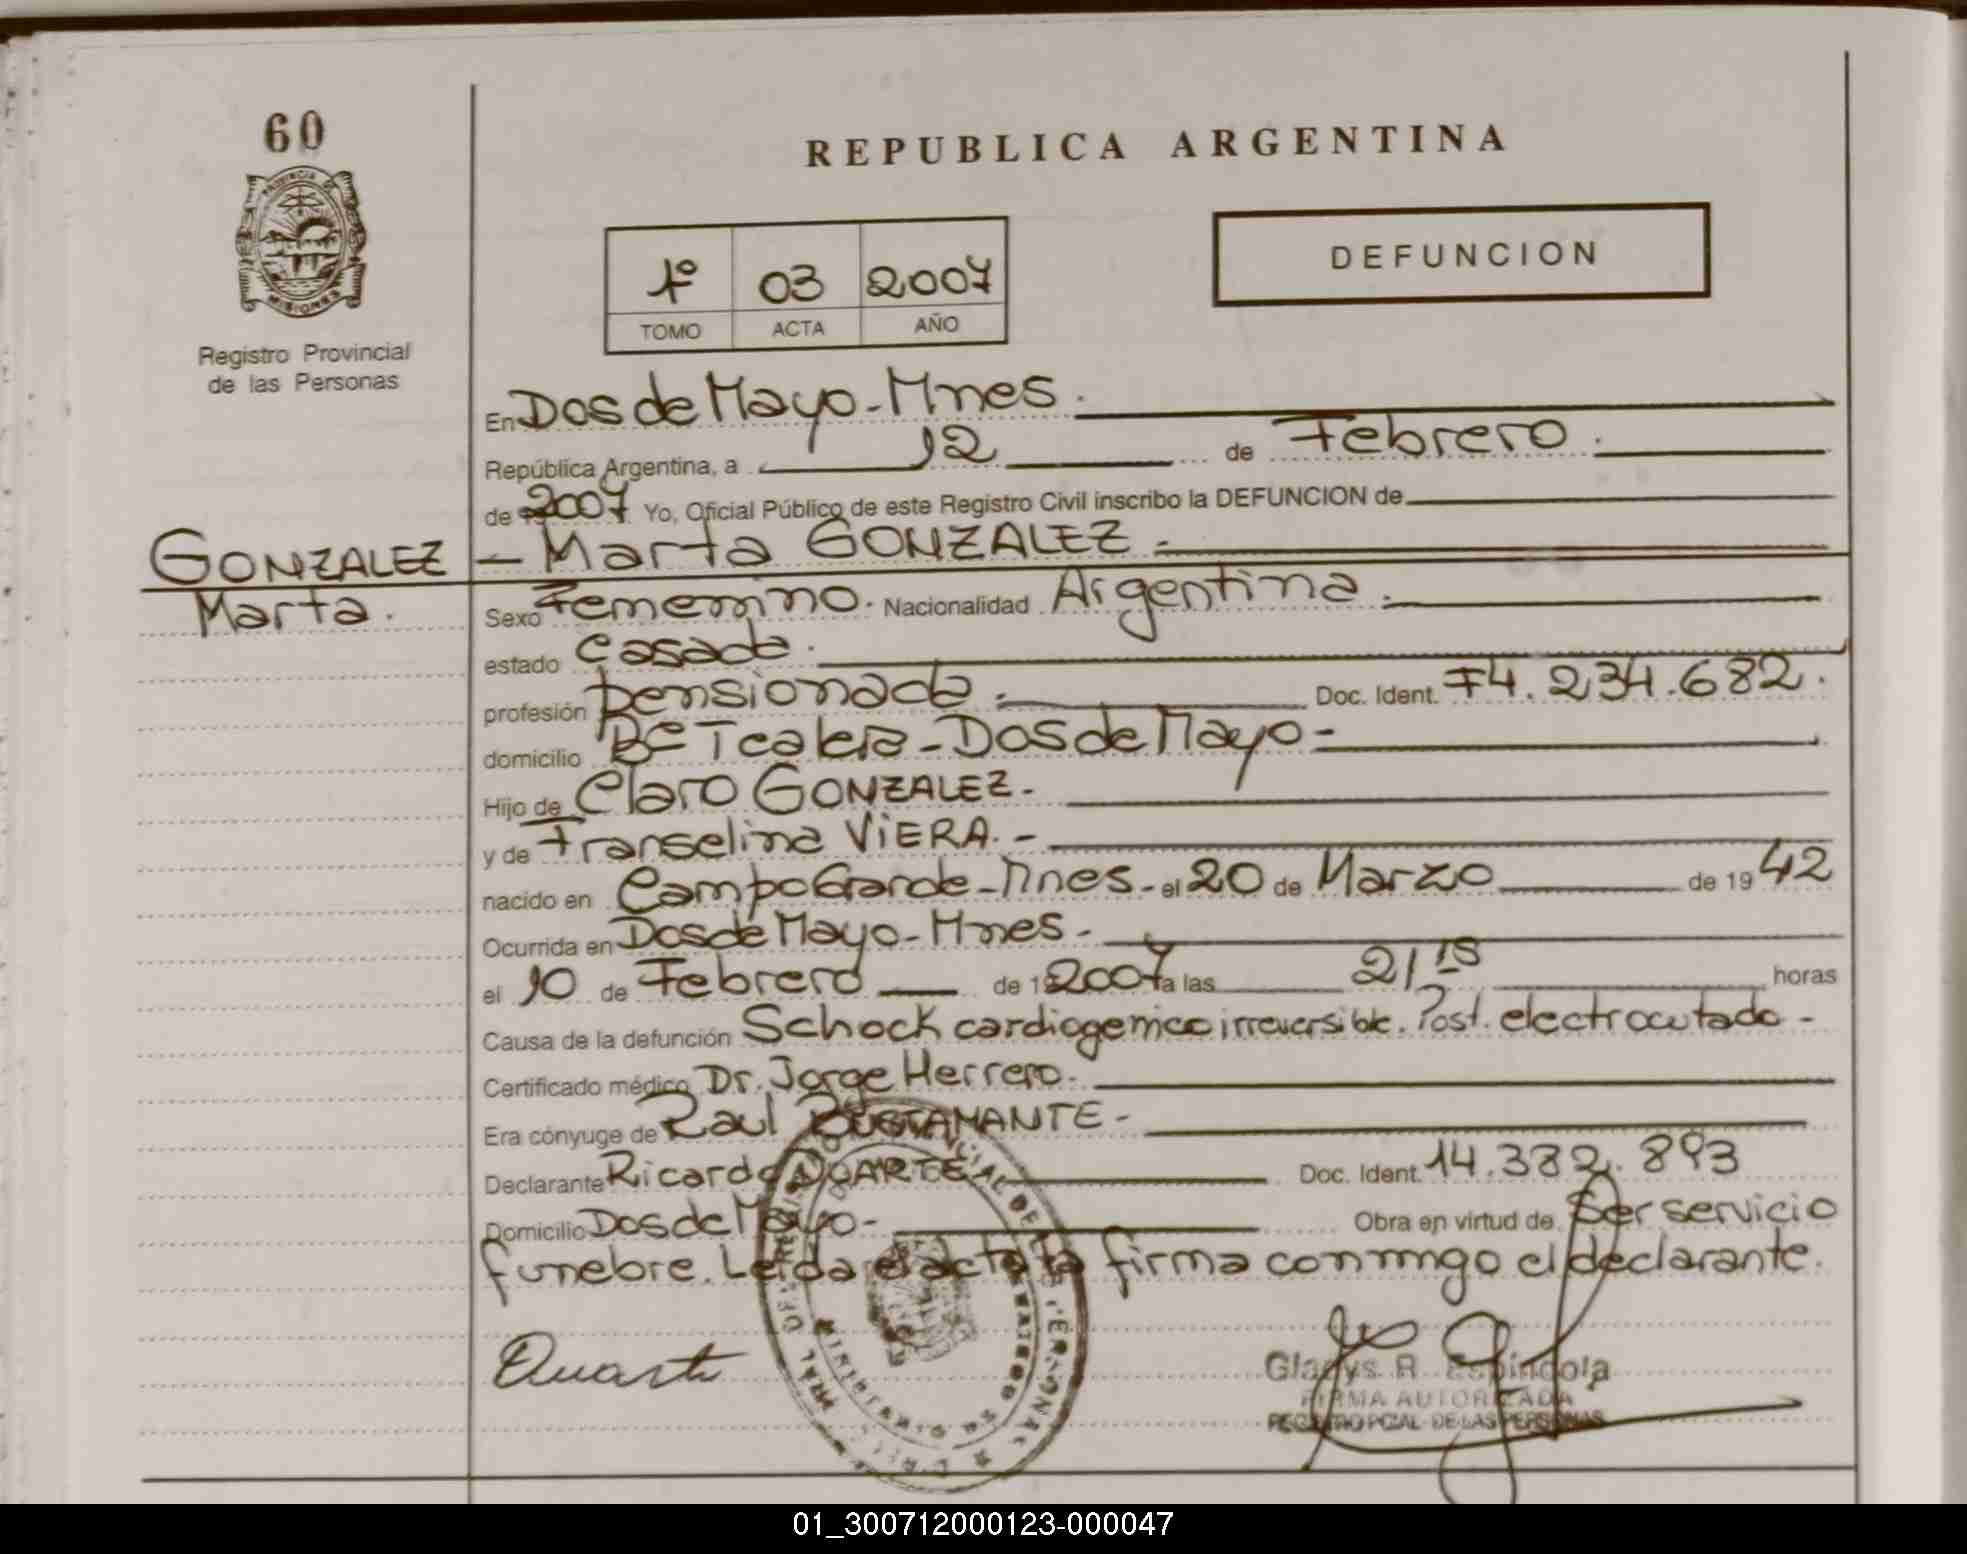 60
PROVINCIA DE
MISIONES
Registro Provincial
de las Personas
REPUBLICA ARGENTINA
1º 03 2007
TOMO ACTA AÑO
DEFUNCION
En Dos de Mayo - Mnes.
República Argentina, a 12 de Febrero.
de 2007 Yo, Oficial Público de este Registro Civil inscribo la DEFUNCION de
GONZALEZ
Marta.
- Marta GONZALEZ -
Sexo Femenino. Nacionalidad Argentina.
estado Casada.
profesión pensionada. Doc. Ident. F4.234.682.
domicilio Bº Tealera - Dos de Mayo -
Hijo de Claro GONZALEZ.
y de Franselina ViERA. -
nacido en Campo Grande - Mnes. el 20 de Marzo de 19 42
Ocurrida en Dos de Mayo - Mnes -
el 10 de Febrero de 2007 a las 21 15 horas
Causa de la defunción Schock cardiogenico irreversible. Post. electrocutado -
Certificado médico Dr. Jorge Herrero.
Era cónyuge de Raul BUSTAMANTE -
Declarante Ricardo DUARTE Doc. Ident. 14.382.893
Domicilio Dos de Mayo - Obra en virtud de Ser servicio
funebre. Leida el acta la firma conmigo el declarante.
Duarte
Gladys R. Espindola
FIRMA AUTORIZADA
REGISTRO PCIAL. DE LAS PERSONAS
01_300712000123-000047